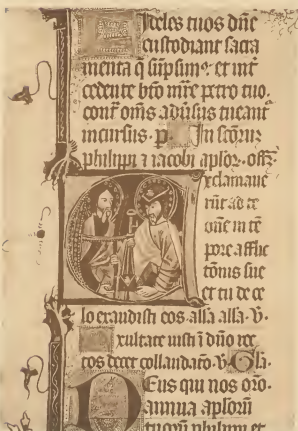 ideles tuos dñe
custodiant sacra
menta q̃ sũpsim⁹. et int̃
cedente bt̃o mr̃e petro tuo.
cont̃ om̃s adũsus tueant̃
incursus. p. In sc̃oru̅
philippi ⁊ iacobi apl̃or. off̃.
Exclamaue
rũt ad te
dñe in tẽ
pore afflic
tõnis sue
et tu de ce
lo exaudisti eos. all̃a all̃a. v̾.
Exultate iusti ĩ dño rec
tos decet collaudatõ. v̾. Gl̃a.
Deus qui nos ãño.
annua apl̃oru̅
tuoru̅ philippi et